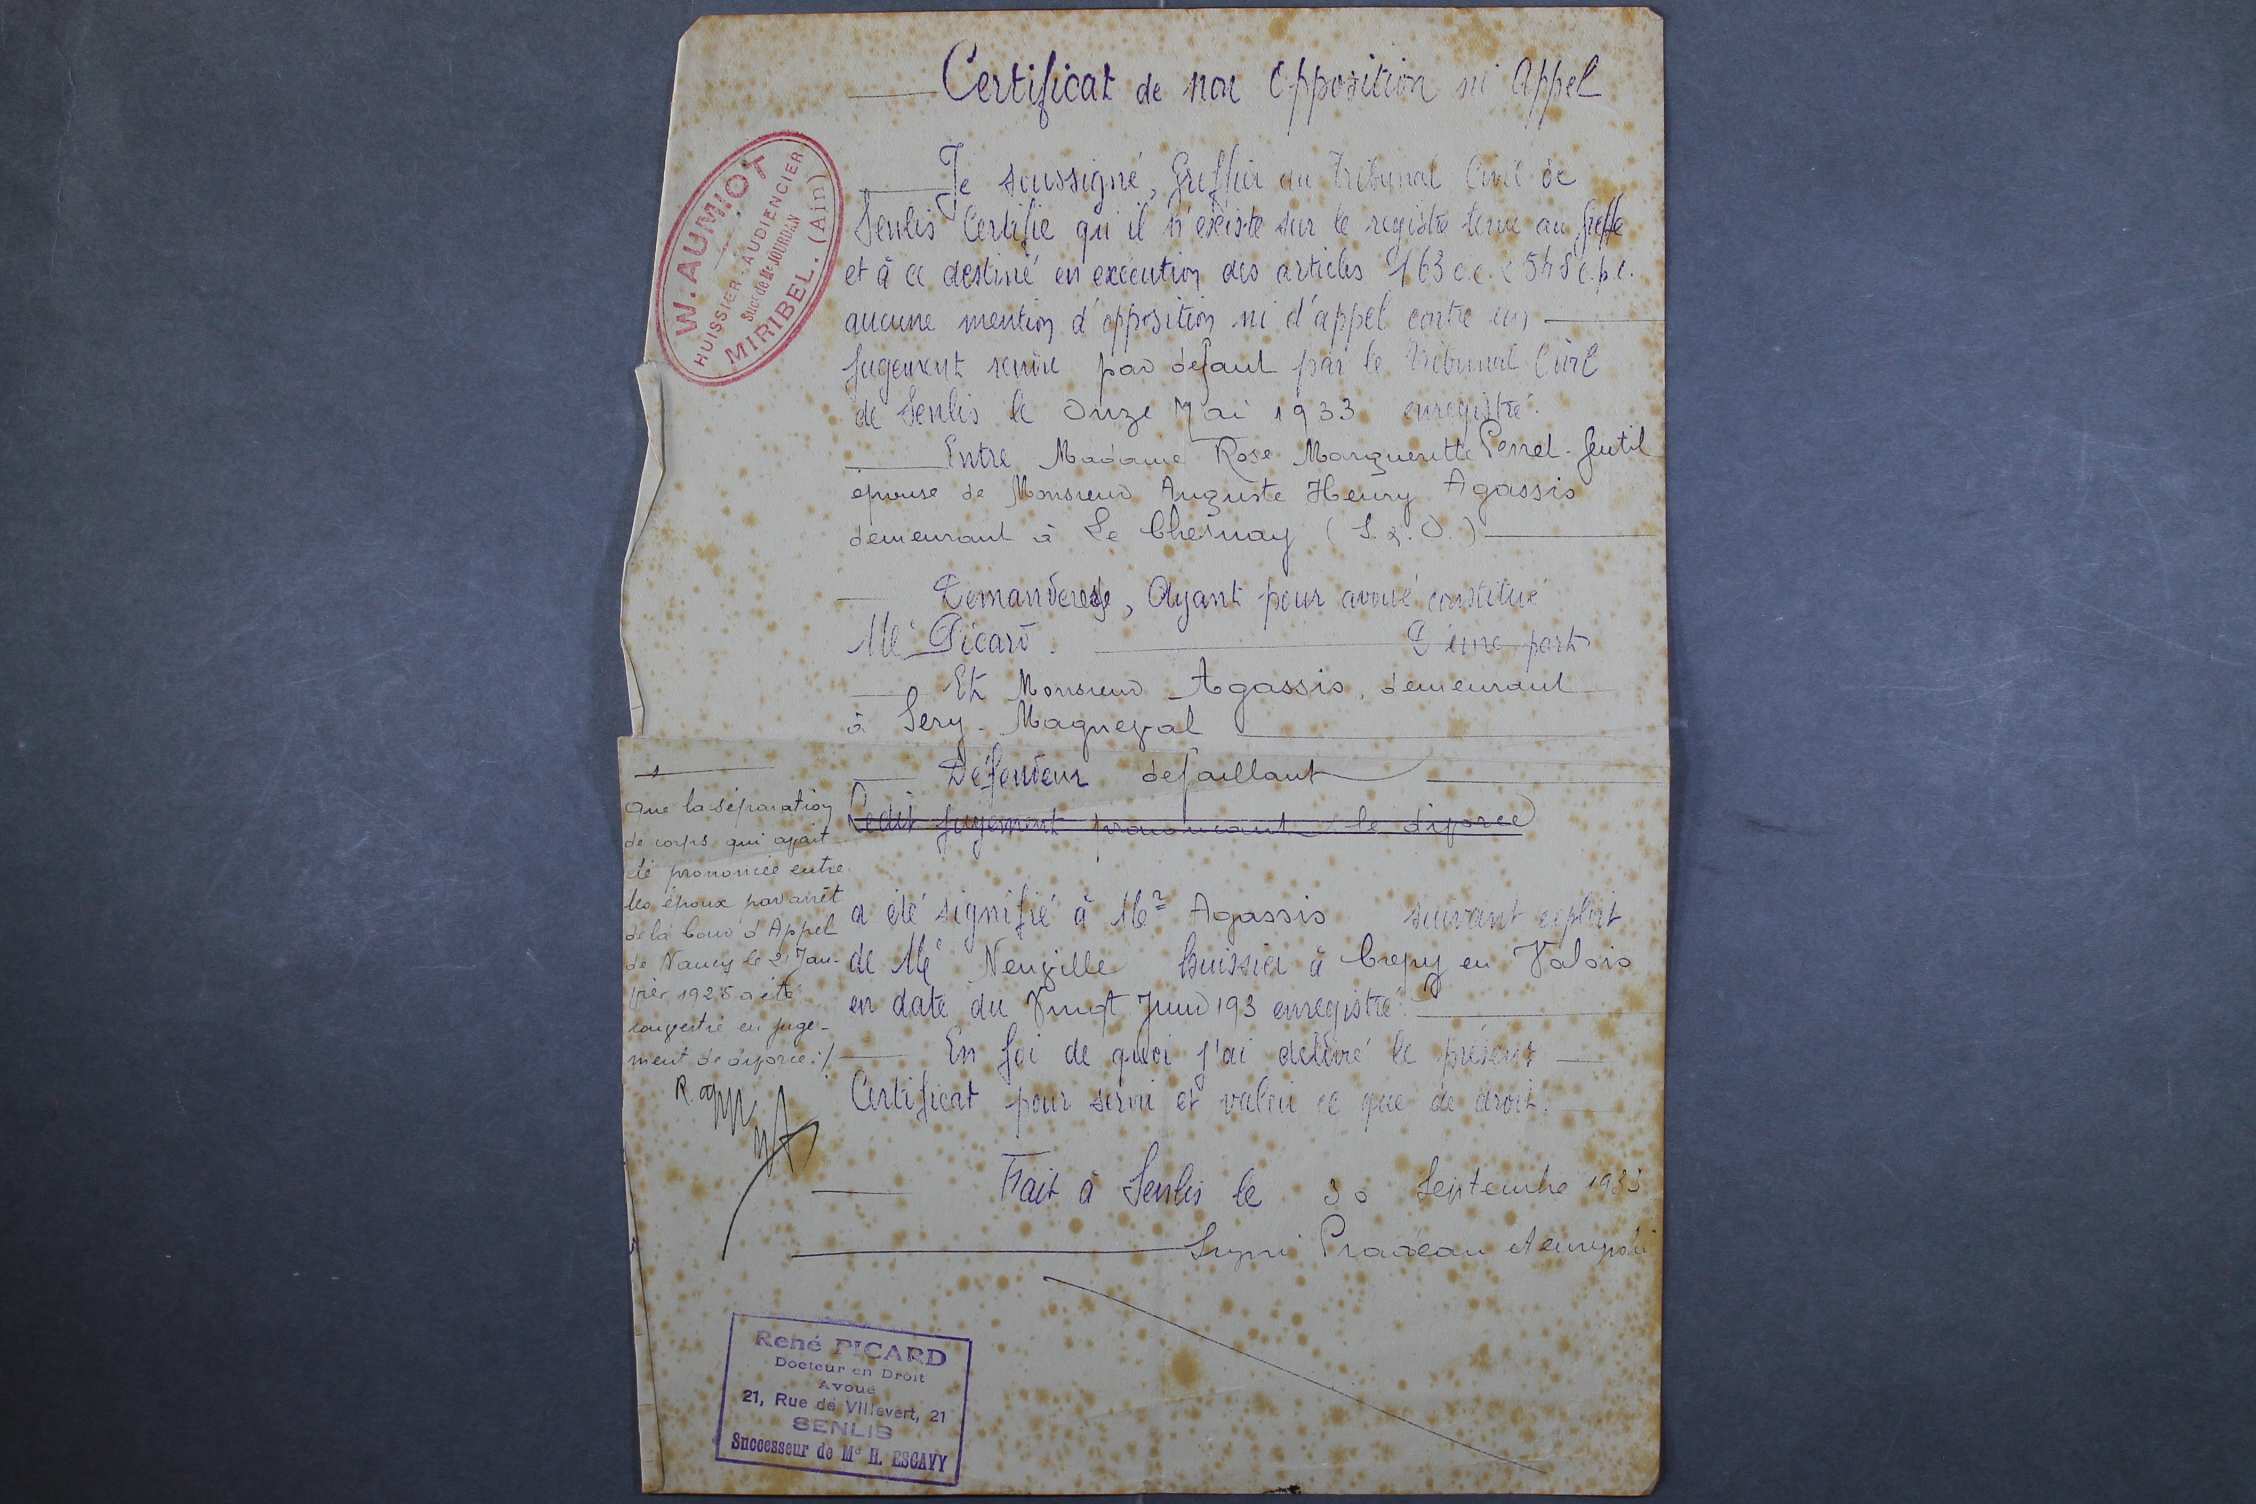 Certificat de non Opposition ni Appel
W. AUMIOT
HUISSIER-AUDIENCIER
Sucr de Me JOURDAN
MIRIBEL. (Ain)
Je soussigné, Greffier au Tribunal Civil de
Senlis Certifie qu'il n'existe sur le registre tenu au Greffe
et à ce destiné en exécution des articles 163 c.c. & 548 c.p.c.
aucune mention d'opposition ni d'appel contre un
jugement rendu par défaut par le Tribunal Civil
de Senlis le Onze Mai 1933 enregistré.
Entre Madame Rose Marguerite Perret-Gentil
épouse de Monsieur Auguste Henry Agassis
demeurant à Le Chesnay (S. & O.)
Demanderesse, Ayant pour avoué constitué
Me Picard. D'une part
Et Monsieur Agassis, demeurant
à Sery-Magneval
Défendeur défaillant
Ledit jugement prononçant le divorce
Que la séparation
de corps qui avait
été prononcée entre
les époux par arrêt
de la Cour d'Appel
de Nancy le 21 Jan-
vier 1925 a été
convertie en juge-
ment de divorce./.
a été signifié à Mr Agassis suivant exploit
de Me Neuville huissier à Crepy en Valois
en date du Vingt Juin 193 enregistré.
En foi de quoi j'ai délivré le présent
Certificat pour servir et valoir ce que de droit.
Fait à Senlis le 30 Septembre 1933
Signé Pradeau et enregistré
René PICARD
Docteur en Droit
Avoué
21, Rue de Villevert, 21
SENLIS
Successeur de Me H. ESCAVY